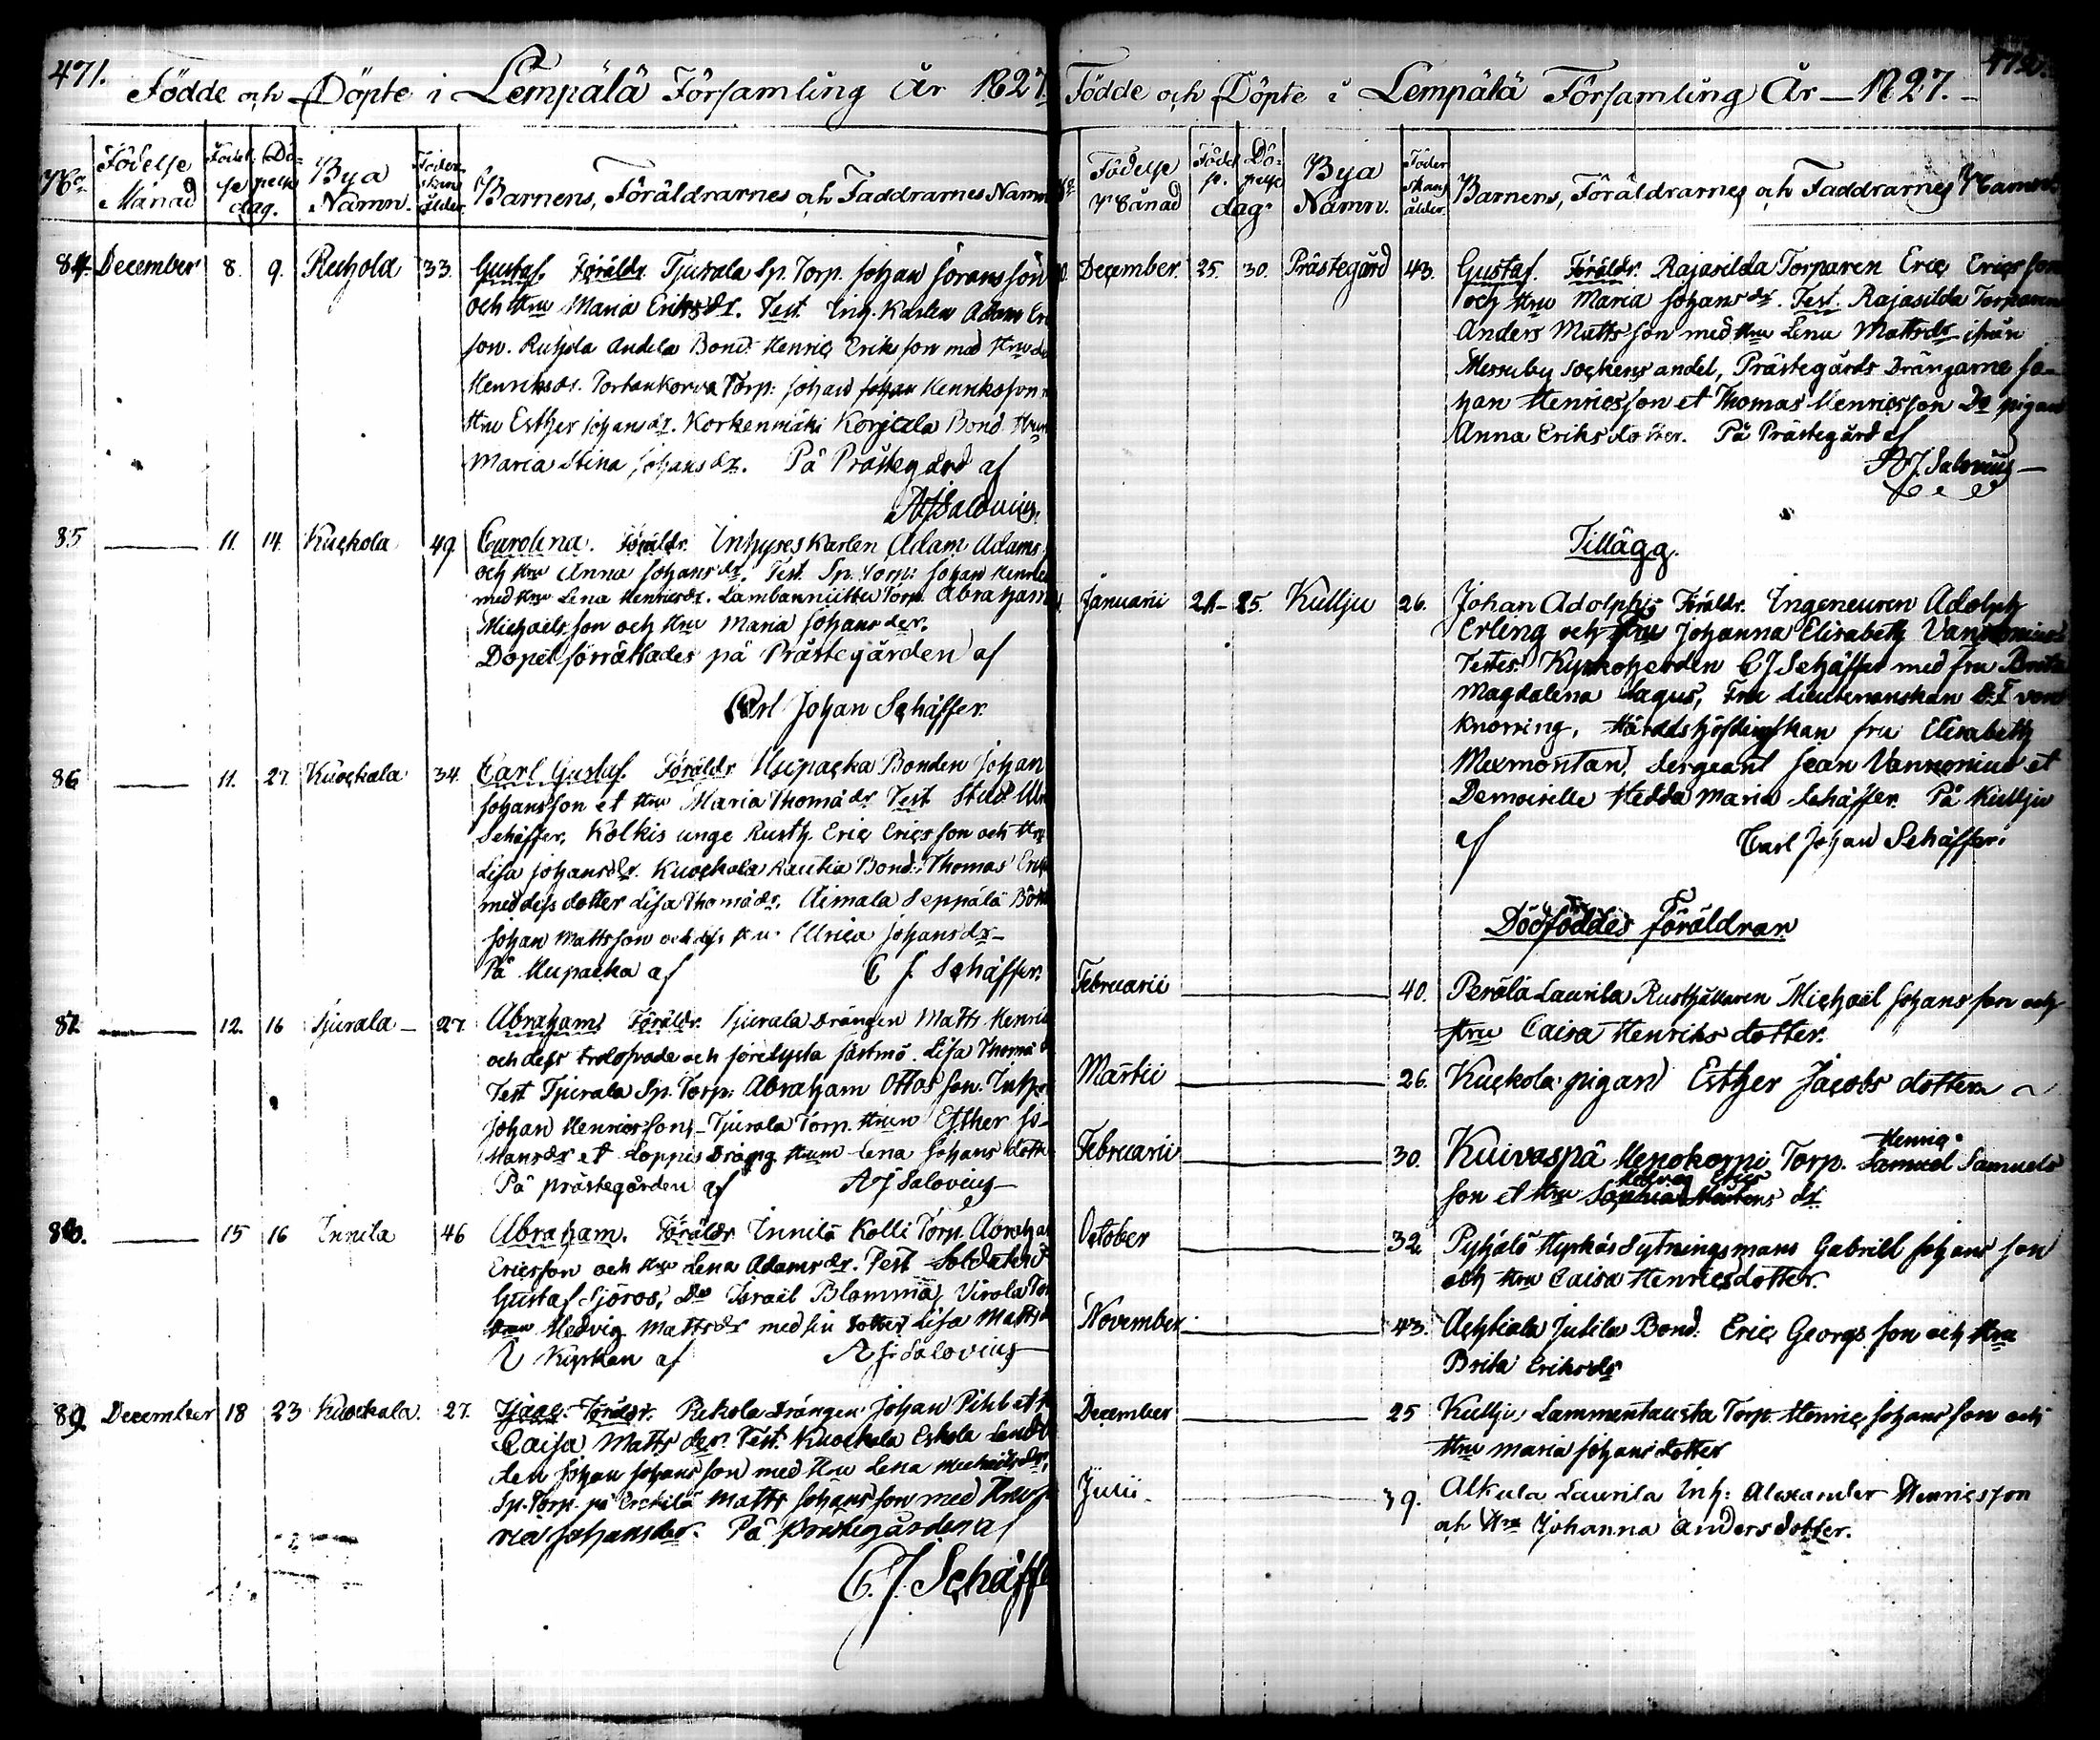 471.
Födde och Döpte i Lempälä Församling År 1827.
No
Födelse Månad
Födelse dag.
Döpelse
Bya Namn.
Moderskans ålder
Barnens, Föräldrarnes och Faddrarnes Namn
84. December 8. 9. Ruhola 33. Gustaf. Föräldr. Tjurala Sp. Torp. Johan Johansson
och Hru Maria Eriksdr. Test. Inh. Karlen Adam
son. Ruhola Andela Bond. Henric Eriksson med Hru
Henriksdr. Torp. Johan Henriksson
Hru Esther Johansdr. Korkenmäki Bond Hru
Maria Stina Johansdr. På Prästegård af
AJSalovius.
85 11. 14. Kuckola 49. Carolina. Föräldr. Inhyses Karlen Adam Adams
och Hru Anna Johansdr. Test. Sp. Torp: Johan
med Hru Lena Henricsdr. Lambanniittu Torp. Abraham
Michaelsson och Hru Maria Johansder.
Dopet förrättades på Prästegården af
Carl Johan Schäffer.
86 11. 27. Kuockala 34. Carl Gustaf. Föräldr Bonden Johan
Johansson et Hru Maria Thomædr Test Stud.
Schäffer, Kolkis unge Rusth. Eric Ericsson och Hru
Lisa Johansdr. Kuockala Rautia Bond. Thomas
med dess dotter Lisa Thomædr. Aimala Seppälä
Johan Mattsson och dess Hru Ulrica Johansdr
På af C J Schäffer.
87. 12. 16 Tjurala 27. Abraham. Föräldr. Tjurala Drängen Matts
och dess trolofvade och förelysta fästmö. Lisa Thomæ
Test Tjurala Sp. Torp. Abraham Ottosson. Inh
Johan Henricsson, Tjurala Torp. Hrun Esther Jo-
hansdr et Loppis Dräng Hrun Lena Johans dotter
På prästegården af AJ Salovius
88. 15 16 Innila 46 Abraham. Föräldr Innilä Kolli Torp. Abraham
Ericsson och Hru Lena Adamsdr. Test Soldaten
Gustaf Sjöros, Do Israël Blomma, Virola
Hrun Hedvig Mattsdr med sin dotter Lisa
I Kyrkan af AJ Salovius
89 December 18 23 Kuockala. 27. Isaac. Föräldr. Rekola Drängen Johan
Caisa Matts der. Test. Kuockala Eskola
den Johan Johansson med Hru Lena Michelsdr,
Sp. Torp. på Matts Johansson med Hru
ria Johansder. På Prästegården af
C. J. Schäffe
472.
Födde och Döpte i Lempälä Församling År 1827.
Födelse Månad
Födelse dag.
Döpelse
Bya Namn.
Moderskans ålder.
Barnens, Föräldrarnes och Faddrarnes Namn
December 25. 30. Prästegård 43. Gustaf. Föräldr. Rajasilda Torparen Eric Ericsson
och Hru Maria Johansdr. Test. Rajasilda Torparen
Anders Mattsson med Hru Lena Mattsdr ifrån
Messuby Sockens andel, Prästegårds Drängarne Jo-
han Henricsson et Thomas Henricsson Do pigan
Anna Eriksdotter. På Prästegård af
AJ. Salovius
Tillägg.
Januarii 21 25. Kullju 26. Johan Adolph Föräldr. Ingeneuren Adolph
Erling och Fru Johanna Elisabeth Vannonius
Testes Kyrkoherden CJ Schäffer med fru Brita
Magdalena Lagus, Fru Lieutenanskan von
Knorring, Häradshöfdingskan fru Elisabeth
Mexmontan, Sergeant Jean Vannonius et
Demoiselle Hedda Maria Schäffer. På Kullju
af Carl Johan Schäffer.
Dödföddes Föräldrar
Februarii 40. Perälä Laurila Rusthållaren Michaël Johansson och
Hru Caisa Henriksdotter.
Martii 26. Kuckola pigan Esther Jacobs dotter
Februarii 30. Kuivaspä Menokorpi Torp. Samuel Henric Samuels
son et Hru Sophia Mårtens Hedvig Erics dr
October 32. Pyhälö Hyrkäs Sytningsmans Gabriell Johansson
och Hru Caisa Henricsdotter.
November 43. Achtiala Jutila Bond. Eric Georgsson och Hru
Brita Eriksdr
December 25 Kullju Lammentausta Torp. Henric Johansson och
Hru Maria Johansdotter
Junii 39. Alkula Laurila Inh: Alexander Henricsson
och Hru Johanna Andersdotter.